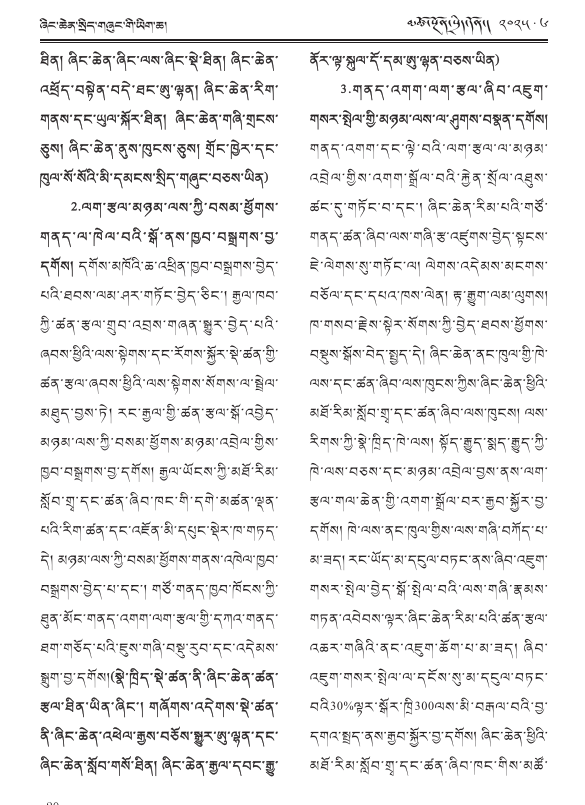 ཞིང་ཆེན་སྲིད་གཞུང་གི་ཡིག་ཆ།
༢༠༢༥ · ༤
ཐིན། ཞིང་ཆེན་ཞིང་ལས་ཞིང་སྡེ་ཐིན། ཞིང་ཆེན་
འཕྲོད་བསྟེན་བདེ་ཐང་ཨུ་ལྷན། ཞིང་ཆེན་རིག་
གནས་དང་ཡུལ་སྐོར་ཐིན། ཞིང་ཆེན་གཞི་གྲངས་
ཅུས། ཞིང་ཆེན་ནུས་ཁུངས་ཅུས། གྲོང་ཁྱེར་དང་
ཁུལ་སོ་སོའི་མི་དམངས་སྲིད་གཞུང་བཅས་ཡིན)
2.ལག་རྩལ་མཉམ་ལས་ཀྱི་བསམ་ཕྱོགས་
གནད་ལ་ཁེལ་བའི་སྒོ་ནས་ཁྱབ་བསྒྲགས་བྱ་
དགོས། དགོས་མཁོའི་ཆ་འཕྲིན་ཁྱབ་བསྒྲགས་བྱེད་
པའི་ཐབས་ལམ་ཤར་གཏོང་བྱེད་ཅིང་། རྒྱལ་ཁབ་
ཀྱི་ཚན་རྩལ་གྲུབ་འབྲས་གཞན་སྒྱུར་བྱེད་པའི་
ཞབས་ཕྱིའི་ལས་སྟེགས་དང་རོགས་སྐྱོར་སྡེ་ཚན་གྱི་
ཚན་རྩལ་ཞབས་ཕྱིའི་ལས་སྟེགས་སོགས་ལ་སྦྲེལ་
མཐུད་བྱས་ཏེ། རང་རྒྱལ་གྱི་ཚན་རྩལ་སྒོ་འབྱེད་
མཉམ་ལས་ཀྱི་བསམ་ཕྱོགས་མཉམ་འབྲེལ་གྱིས་
ཁྱབ་བསྒྲགས་བྱ་དགོས། རྒྱལ་ཡོངས་ཀྱི་མཐོ་རིམ་
སློབ་གྲྭ་དང་ཚན་ཞིབ་ཁང་གི་དགེ་མཚན་ལྡན་
པའི་རིག་ཚན་དང་འཛོན་མི་དཔུང་སྡེར་ཁ་གཏད་
དེ། མཉམ་ལས་ཀྱི་བསམ་ཕྱོགས་གནས་འཁེལ་ཁྱབ་
བསྒྲགས་བྱེད་པ་དང་། གཙོ་གནད་ཁྱབ་ཁོངས་ཀྱི་
ཐུན་མོང་གནད་འགག་ལག་རྩལ་གྱི་དཀའ་གནད་
ཐག་གཅོད་པའི་དུས་གཞི་བསྡུ་རུབ་དང་འདེམས་
སྒྲུག་བྱ་དགོས།(སྣེ་ཁྲིད་སྡེ་ཚན་ནི་ཞིང་ཆེན་ཚན་
རྩལ་ཐིན་ཡིན་ཞིང་། གཞོགས་འདེགས་སྡེ་ཚན་
ནི་ཞིང་ཆེན་འཕེལ་རྒྱས་བཅོས་སྒྱུར་ཨུ་ལྷན་དང་
ཞིང་ཆེན་སློབ་གསོ་ཐིན། ཞིང་ཆེན་རྒྱལ་དབང་རྒྱུ་
ནོར་ལྟ་སྐུལ་དོ་དམ་ཨུ་ལྷན་བཅས་ཡིན)
3.གནད་འགག་ལག་རྩལ་ཞིབ་འཇུག་
གསར་སྤེལ་གྱི་མཉམ་ལས་ལ་ཤུགས་བསྣན་དགོས།
གནད་འགག་དང་ལྟེ་བའི་ལག་རྩལ་ལ་མཉམ་
འབྲེལ་གྱིས་འགག་སྒྲོལ་བའི་རྐྱེན་སྲོལ་འཐུས་
ཚང་དུ་གཏོང་བ་དང་། ཞིང་ཆེན་རིམ་པའི་གཙོ་
གནད་ཚན་ཞིབ་ལས་གཞི་རྩ་འཛུགས་བྱེད་སྟངས་
ཇེ་ལེགས་སུ་གཏོང་ལ། ལེགས་འདེམས་མངགས་
བཅོལ་དང་དཔའ་ཁས་ལེན། རྟ་རྒྱུག་ལམ་ལུགས།
ཁ་གསབ་རྗེས་སྟེར་སོགས་ཀྱི་བྱེད་ཐབས་ཕྱོགས་
བསྡུས་སྒོས་བེད་སྤྱད་དེ། ཞིང་ཆེན་ནང་ཁུལ་གྱི་ཁེ་
ལས་དང་ཚན་ཞིབ་ལས་ཁུངས་ཀྱིས་ཞིང་ཆེན་ཕྱིའི་
མཐོ་རིམ་སློབ་གྲྭ་དང་ཚན་ཞིབ་ལས་ཁུངས། ལས་
རིགས་ཀྱི་སྣེ་ཁྲིད་ཁེ་ལས། སྟོད་རྒྱུད་སྨད་རྒྱུད་ཀྱི་
ཁེ་ལས་བཅས་དང་མཉམ་འབྲེལ་བྱས་ནས་ལག་
རྩལ་གལ་ཆེན་གྱི་འགག་སྒྲོལ་བར་རྒྱབ་སྐྱོར་བྱ་
དགོས། ཁེ་ལས་ནང་ཁུལ་གྱིས་ལས་གཞི་བཀོད་པ་
མ་ཟད། རང་ཡོད་མ་དངུལ་བཏང་ནས་ཞིབ་འཇུག་
གསར་སྤེལ་བྱེད་སྒོ་སྤེལ་བའི་ལས་གཞི་རྣམས་
གཏན་འབེབས་ལྟར་ཞིང་ཆེན་རིམ་པའི་ཚན་རྩལ་
འཆར་གཞིའི་ནང་འཇུག་ཆོག་པ་མ་ཟད། ཞིབ་
འཇུག་གསར་སྤེལ་ལ་དངོས་སུ་མ་དངུལ་བཏང་
བའི30%ལྟར་སྒོར་ཁྲི300ལས་མི་བརྒལ་བའི་བྱ་
དགའ་སྤྲད་ནས་རྒྱབ་སྐྱོར་བྱ་དགོས། ཞིང་ཆེན་ཕྱིའི་
མཐོ་རིམ་སློབ་གྲྭ་དང་ཚན་ཞིབ་ཁང་གིས་མཚོ་